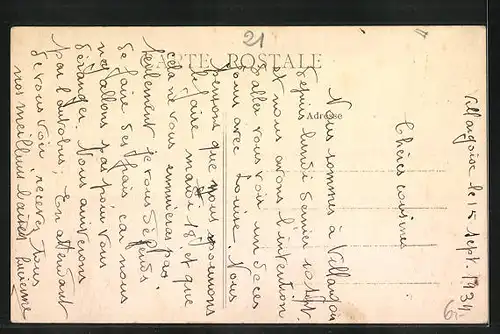 CARTE POSTALE
Adresse
21
Villargoix le 15 sept. 1934
Chères cousines
Nous sommes à Villargoix
depuis lundi dernier 10 sept.
et nous avons l'intention
d'aller vous voir un de ces
jours avec Louise. Nous
pensons que nous pourrons
le faire mardi 18 et que
cela ne vous ennuiera pas
seulement je vous défends
de faire des frais car nous
n'allons pas pour vous
déranger. Nous arriverons
par l'autobus; En attendant
de vous voir, recevez tous
nos meilleurs baisers Lucienne
6-